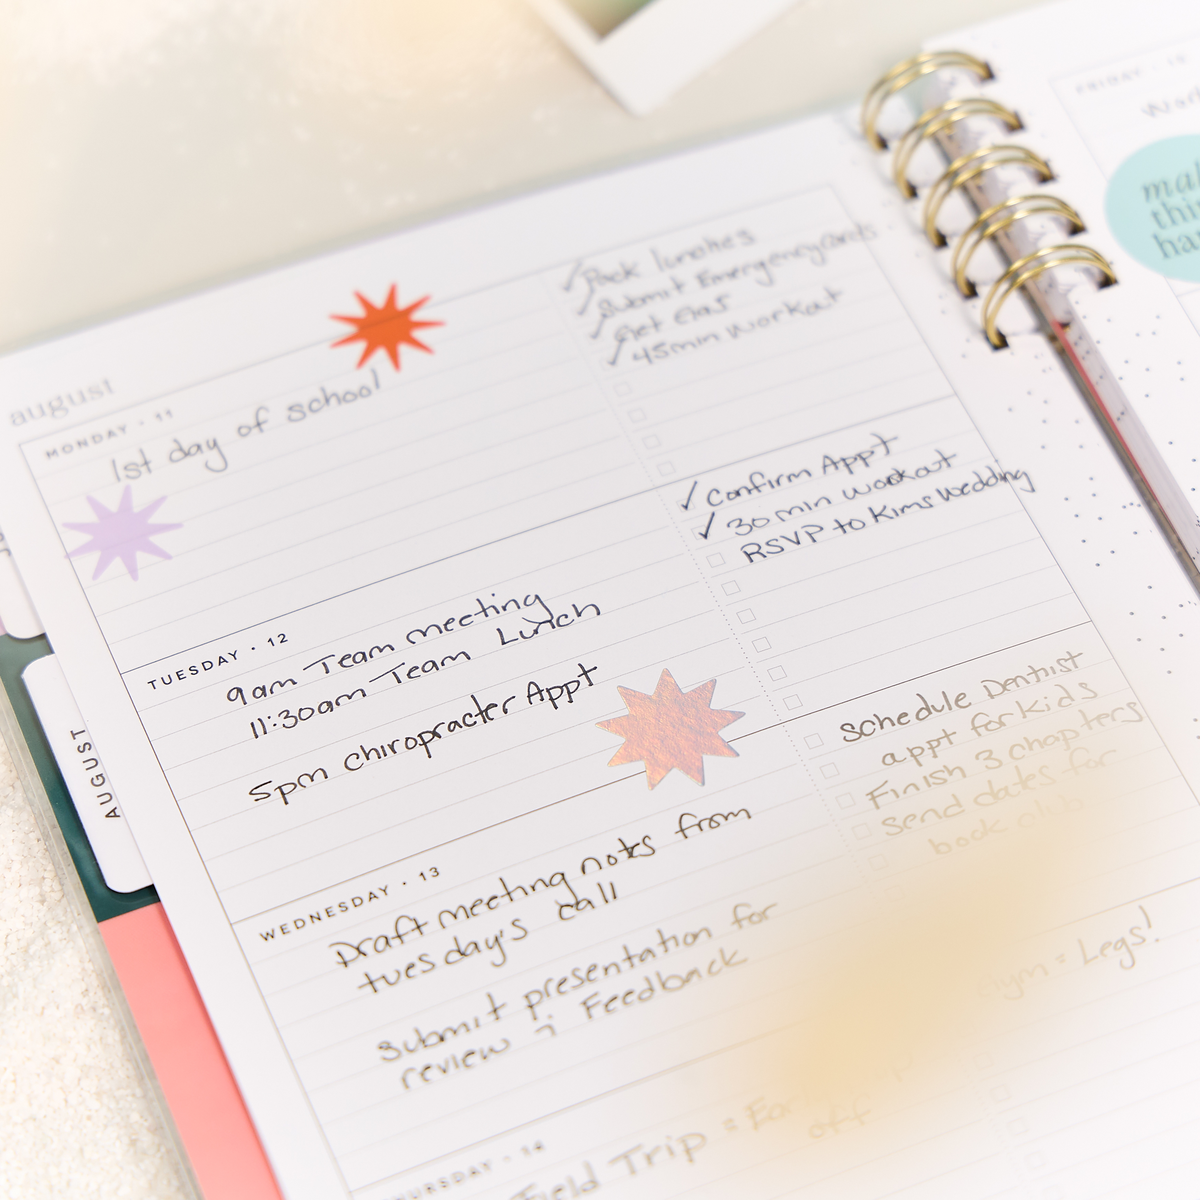 august
MONDAY · 11
1st day of school
Pack lunches
Submit Emergency cards
Get Gas
45min workout
TUESDAY · 12
9am Team meeting
11:30am Team Lunch
5pm chiropracter Appt
Confirm Appt
30 min workout
RSVP to Kims Wedding
WEDNESDAY · 13
Draft meeting notes from
tuesday's call
Submit presentation for
review + Feedback
Schedule Dentist
appt for kids
Finish 3 chapters
send dates for
book club
THURSDAY · 14
Field Trip =
off
Gym = Legs!
AUGUST
FRIDAY ·